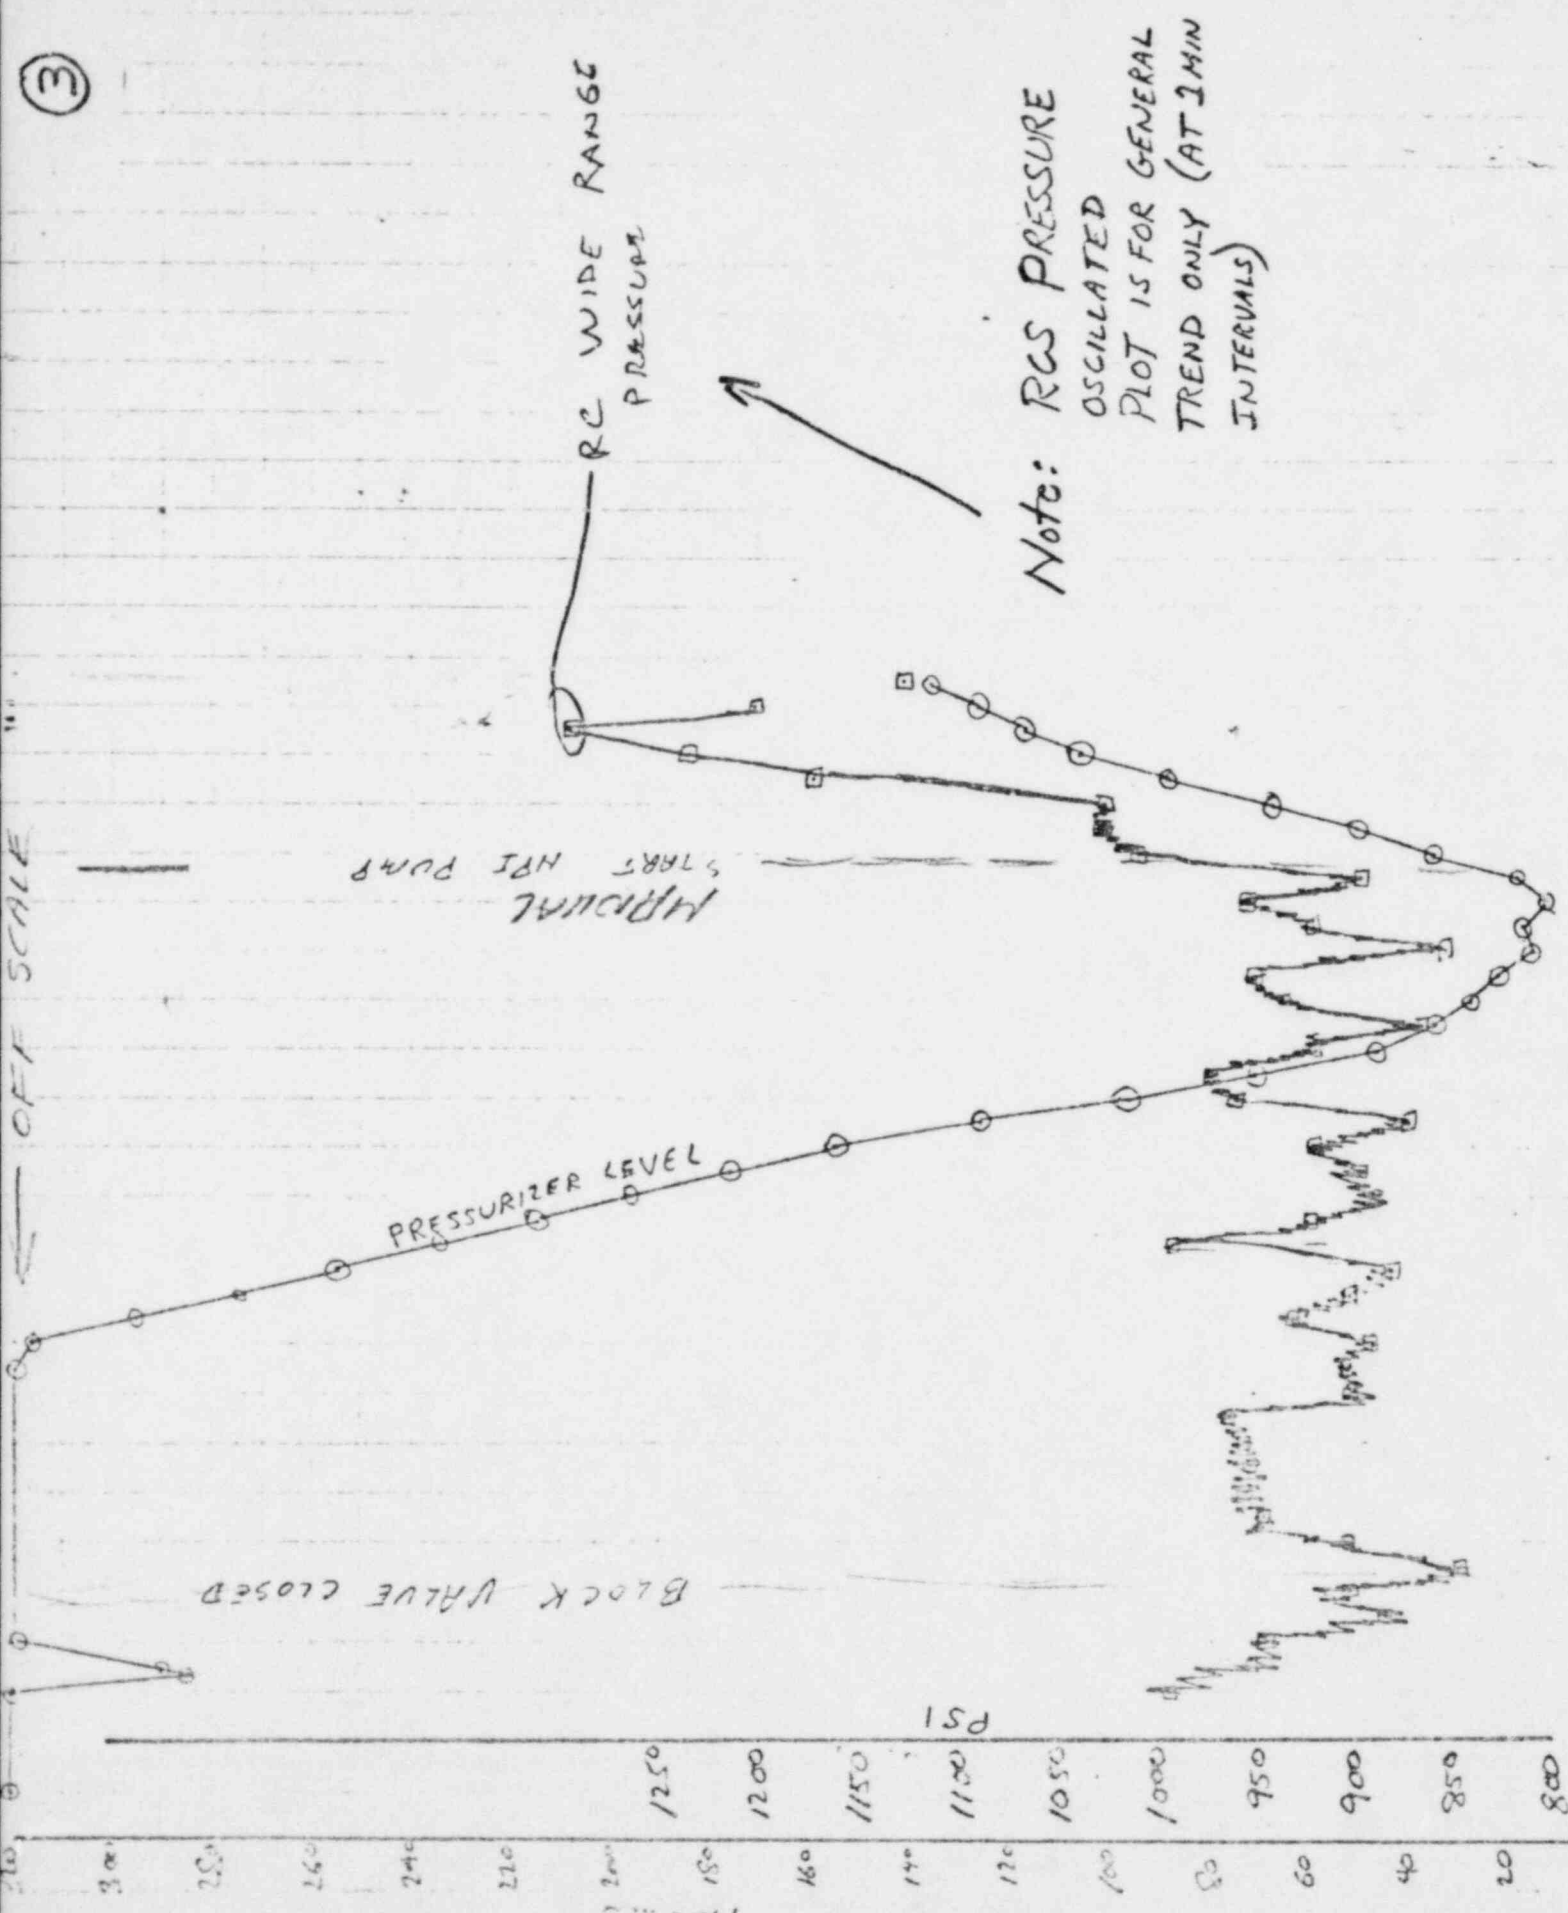 ③
← OFF SCALE
RC WIDE RANGE
PRESSURE
Note: RCS PRESSURE
OSCILLATED
PLOT IS FOR GENERAL
TREND ONLY (AT 2 MIN
INTERVALS)
MANUAL
START HPI PUMP
PRESSURIZER LEVEL
BLOCK VALVE CLOSED
PSI
1250
1200
1150
1100
1050
1000
950
900
850
800
320
300
280
260
240
220
200
180
160
140
120
100
80
60
40
20